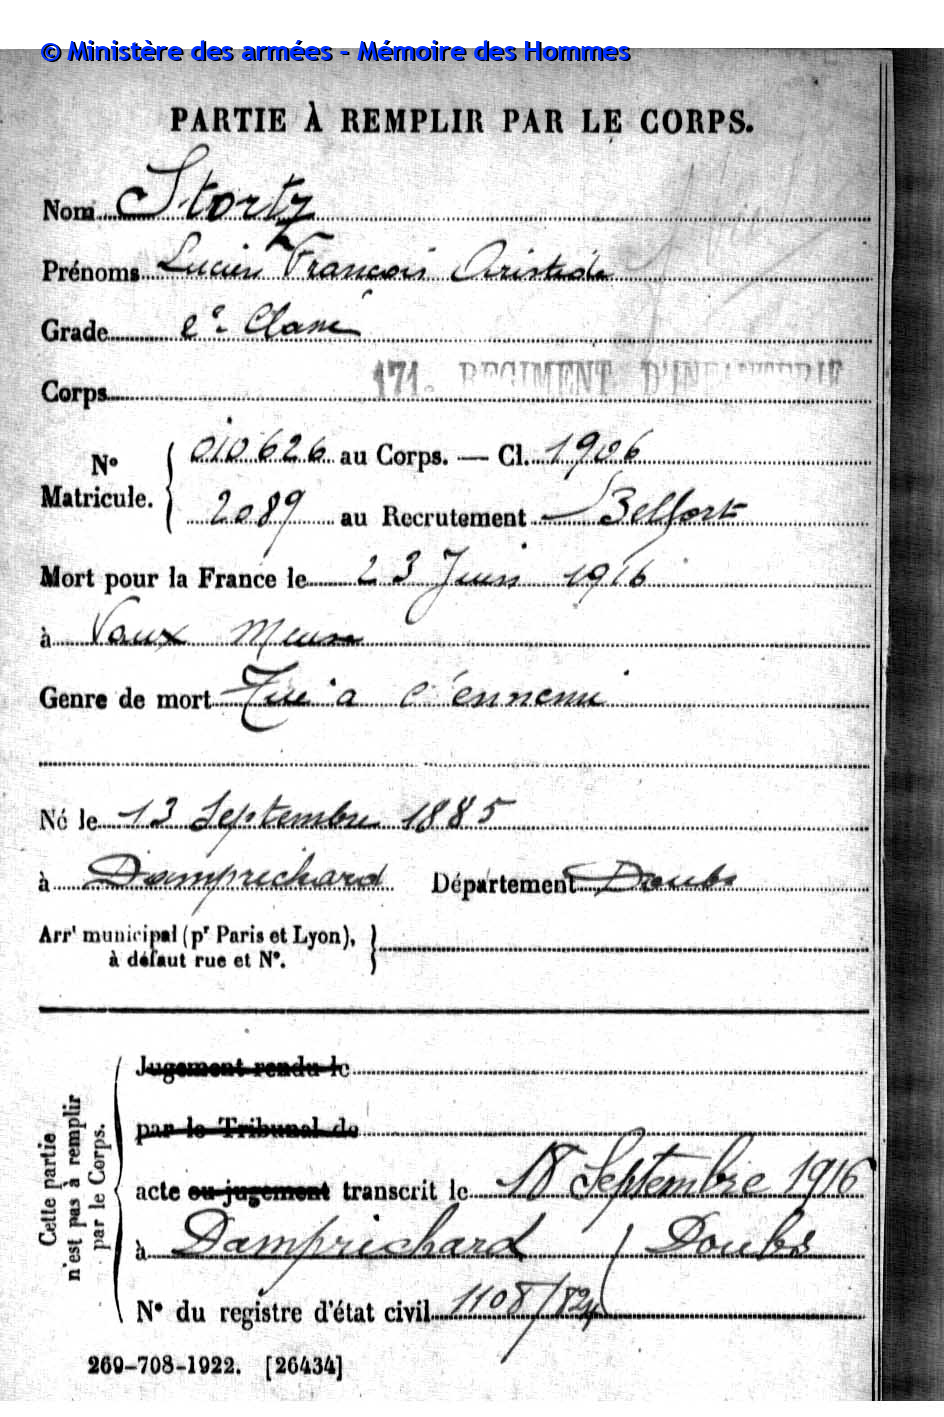 © Ministère des armées - Mémoire des Hommes
PARTIE À REMPLIR PAR LE CORPS.
Nom Stortz
Prénoms Lucien François Aristide
Grade 2e Classe
Corps 171e REGIMENT D'INFANTERIE
No Matricule. { 010626 au Corps. — Cl. 1906
2089 au Recrutement Belfort
Mort pour la France le 23 Juin 1916
à Vaux Meuse
Genre de mort Tué à l'ennemi
Né le 13 Septembre 1885
à Damprichard Département Doubs
Arrt municipal (pr Paris et Lyon),
à défaut rue et No.
Cette partie n'est pas à remplir par le Corps.
Jugement rendu le
par le Tribunal de
acte ou jugement transcrit le 18 Septembre 1916
à Damprichard / Doubs
No du registre d'état civil 1108/824
269-708-1922. [26434]